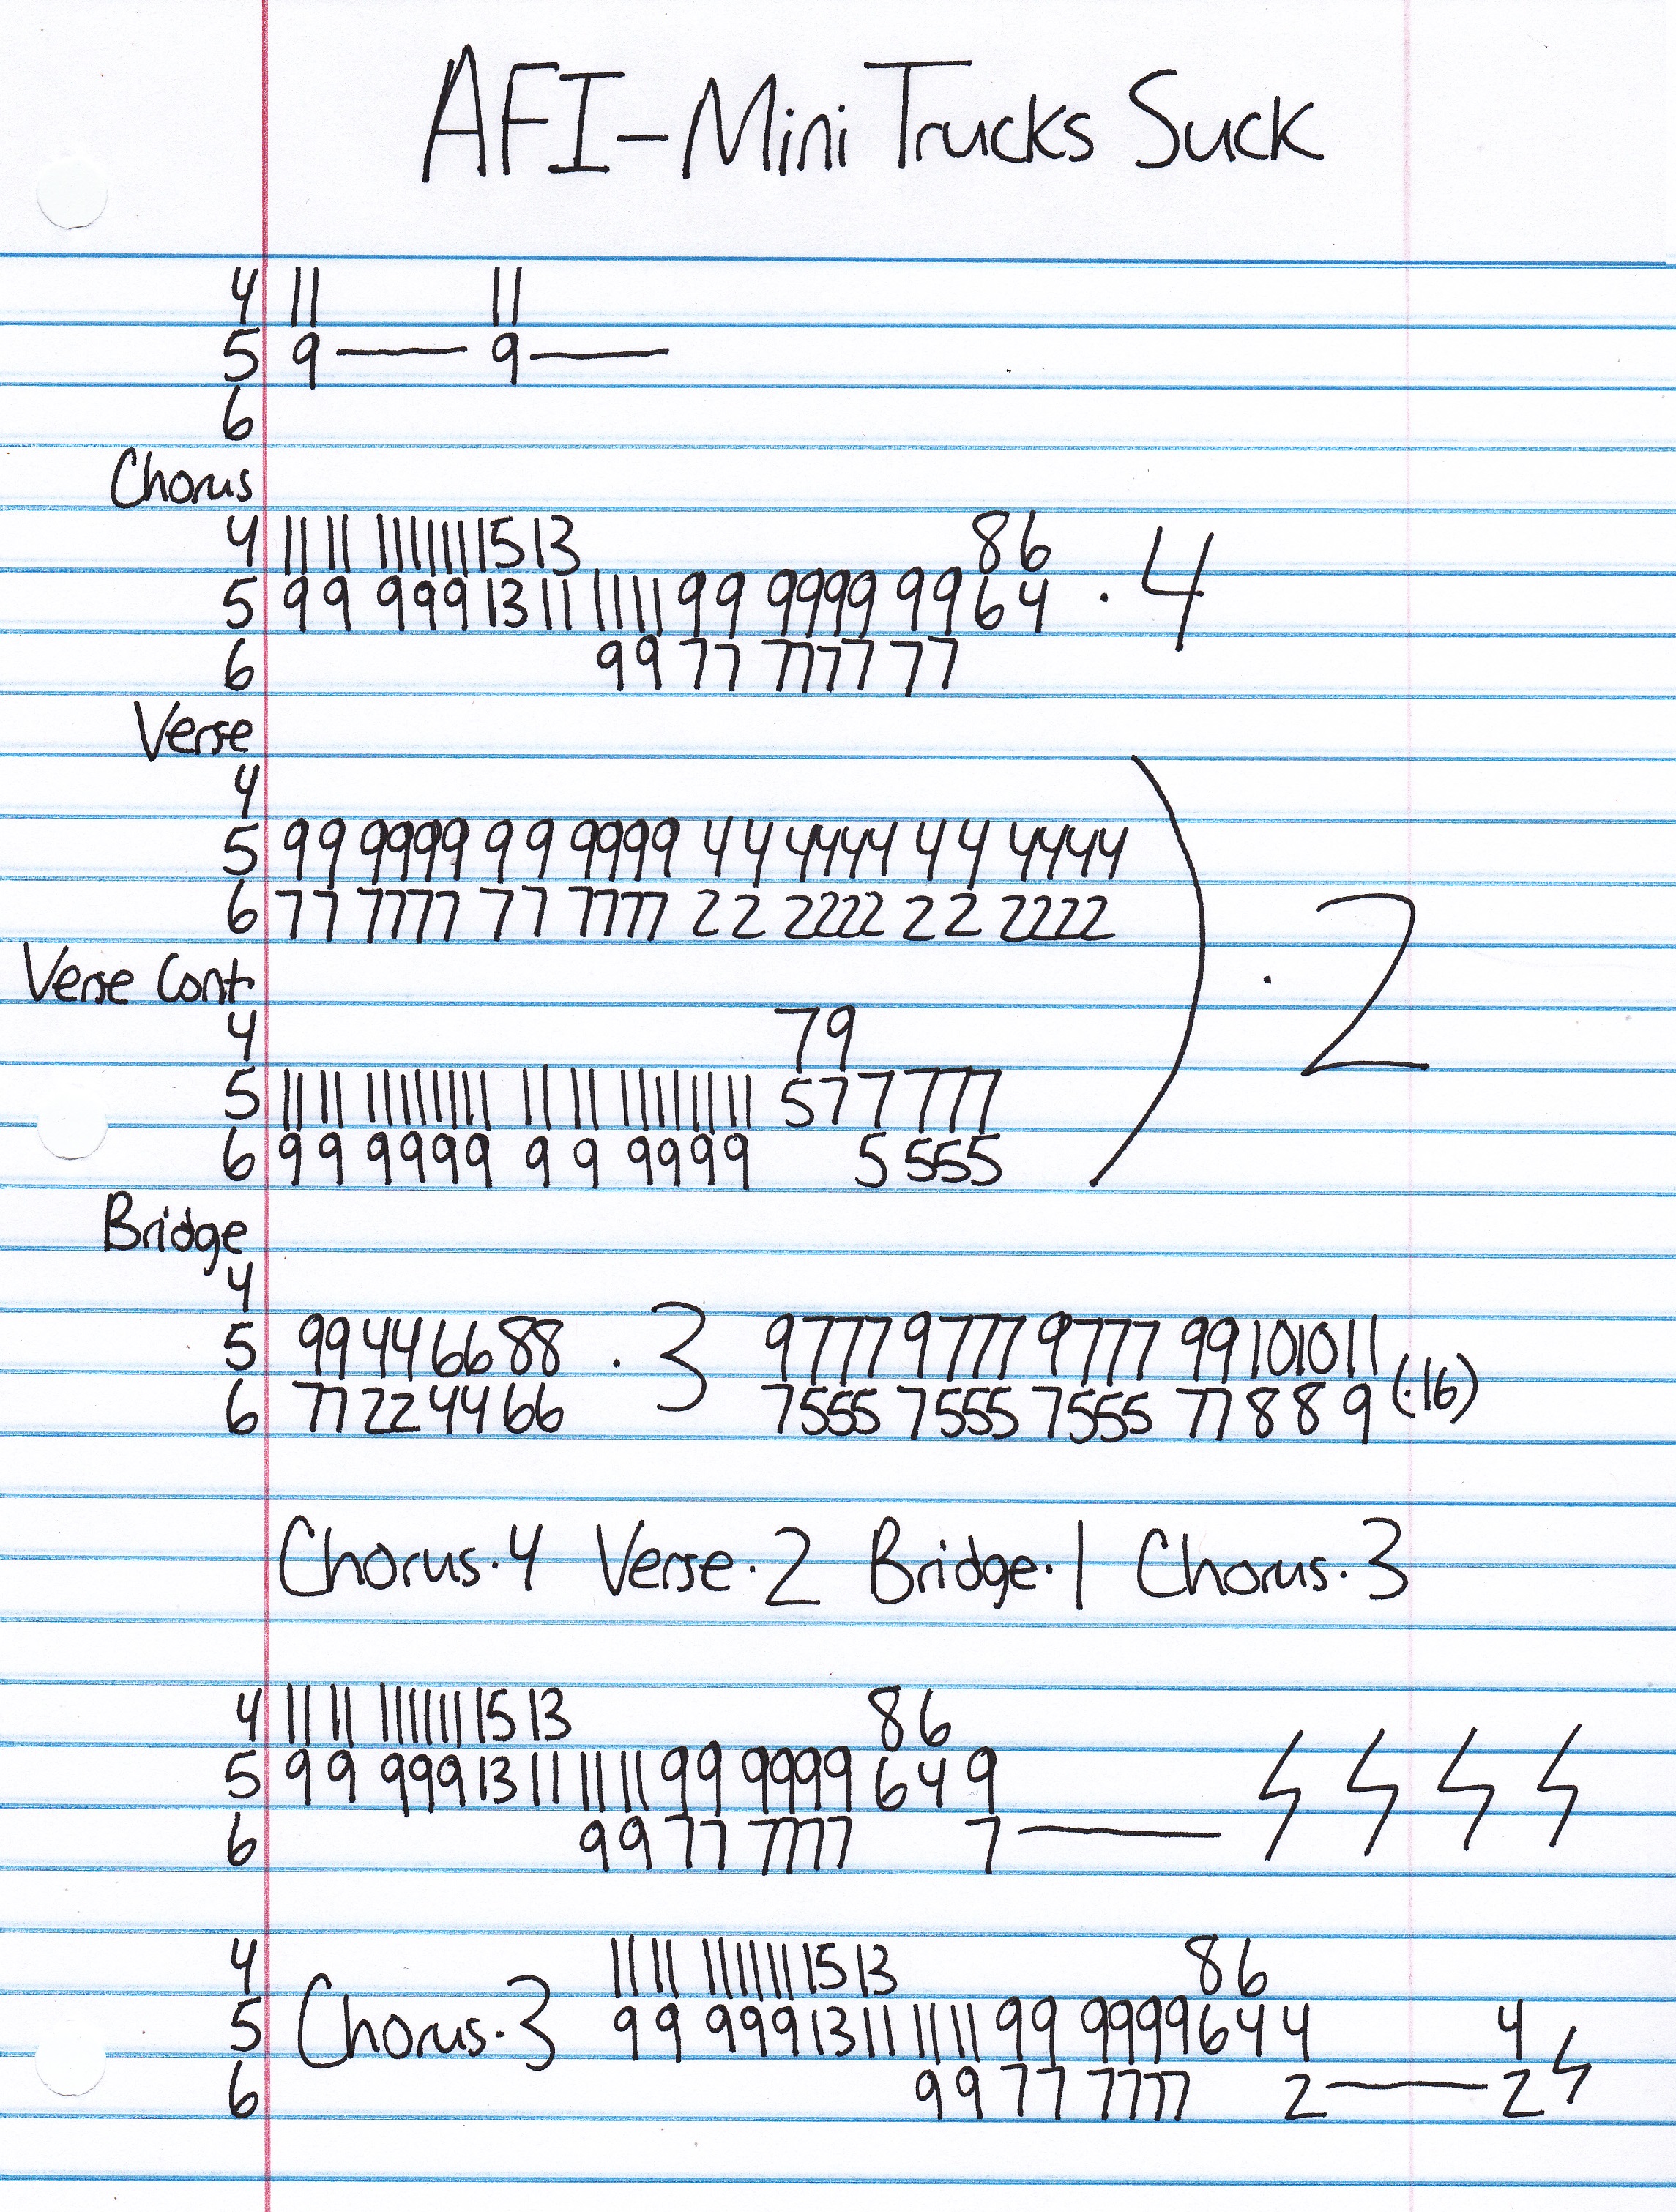 AFI-Mini Trucks Suck
4 11 11
5 9 — 9 —
6
Chorus
4 11 11 11111115 13 86
5 99 999 13 11 1111 99 9999 99 64 · 4
6 99 77 7777 77
Verse
4
5 99 9999 99 9999 44 4444 44 4444
6 77 7777 77 7777 22 2222 22 2222 ) · 2
Verse Cont
4 79
5 11 11 11111111 11 11 11111111 577 777
6 99 9999 99 9999 5 555
Bridge
4
5 99446688 · 3 9777 9777 9777 99101011
6 77224466 7555 7555 7555 77889 (·16)
Chorus·4 Verse·2 Bridge·1 Chorus·3
4 11 11 11111115 13 86
5 99 999 13 11 1111 99 9999 649
6 99 77 7777 7 —
4 11 11 11111115 13 86
5 Chorus·3 99 999 13 11 1111 99 9999644 4
6 99 77 7777 2 — 2